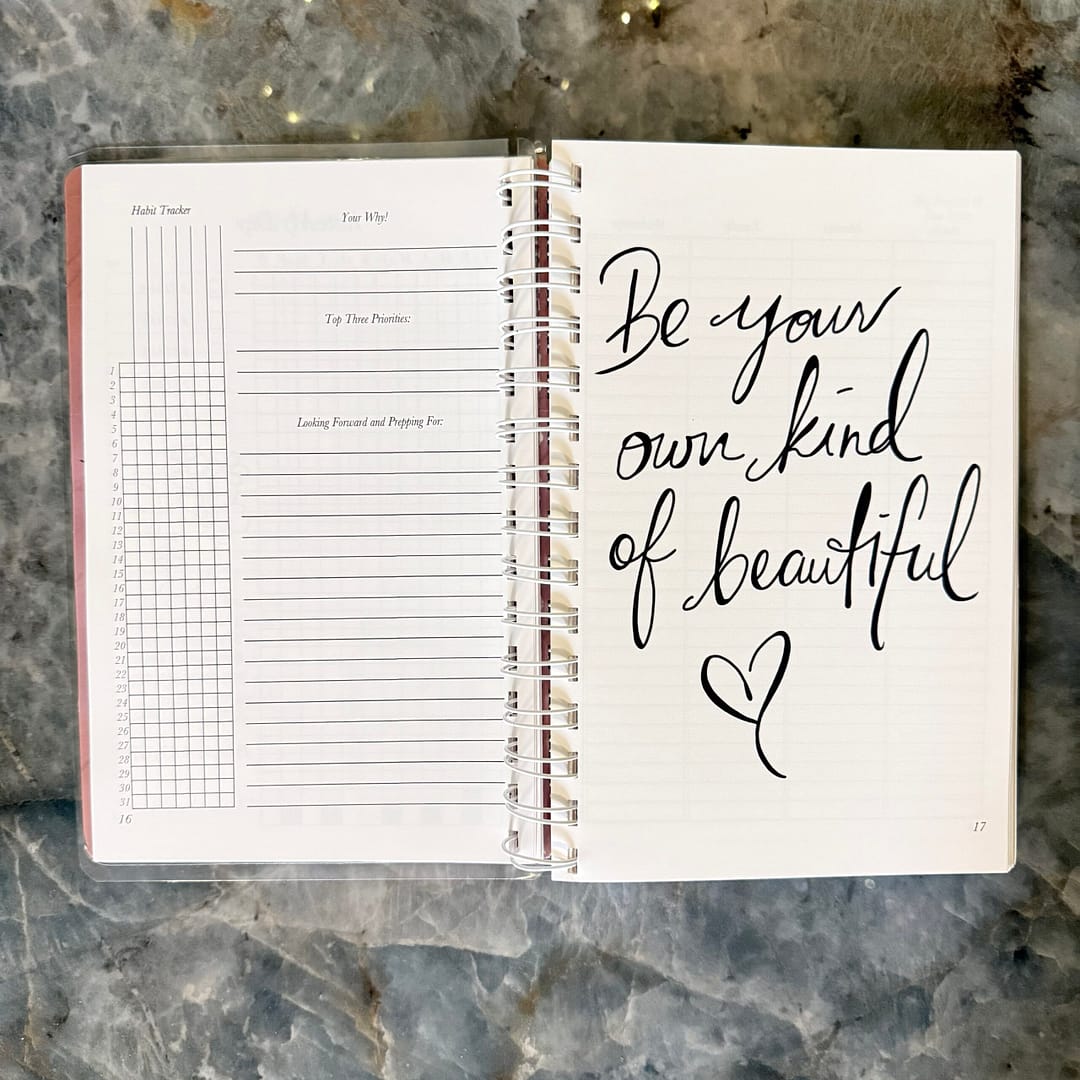 Habit Tracker
1
2
3
4
5
6
7
8
9
10
11
12
13
14
15
16
17
18
19
20
21
22
23
24
25
26
27
28
29
30
31
16
Your Why!
Top Three Priorities:
Looking Forward and Prepping For:
Be your
own kind
of beautiful
17